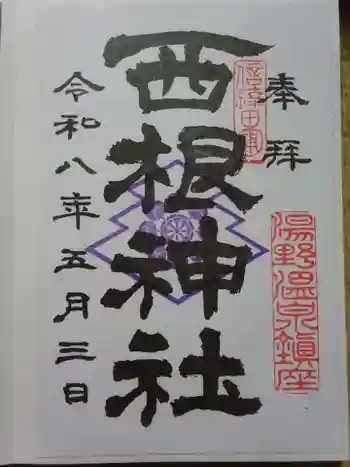 奉拝
信達一円
湯野温泉鎮座
西根神社
令和八年五月三日